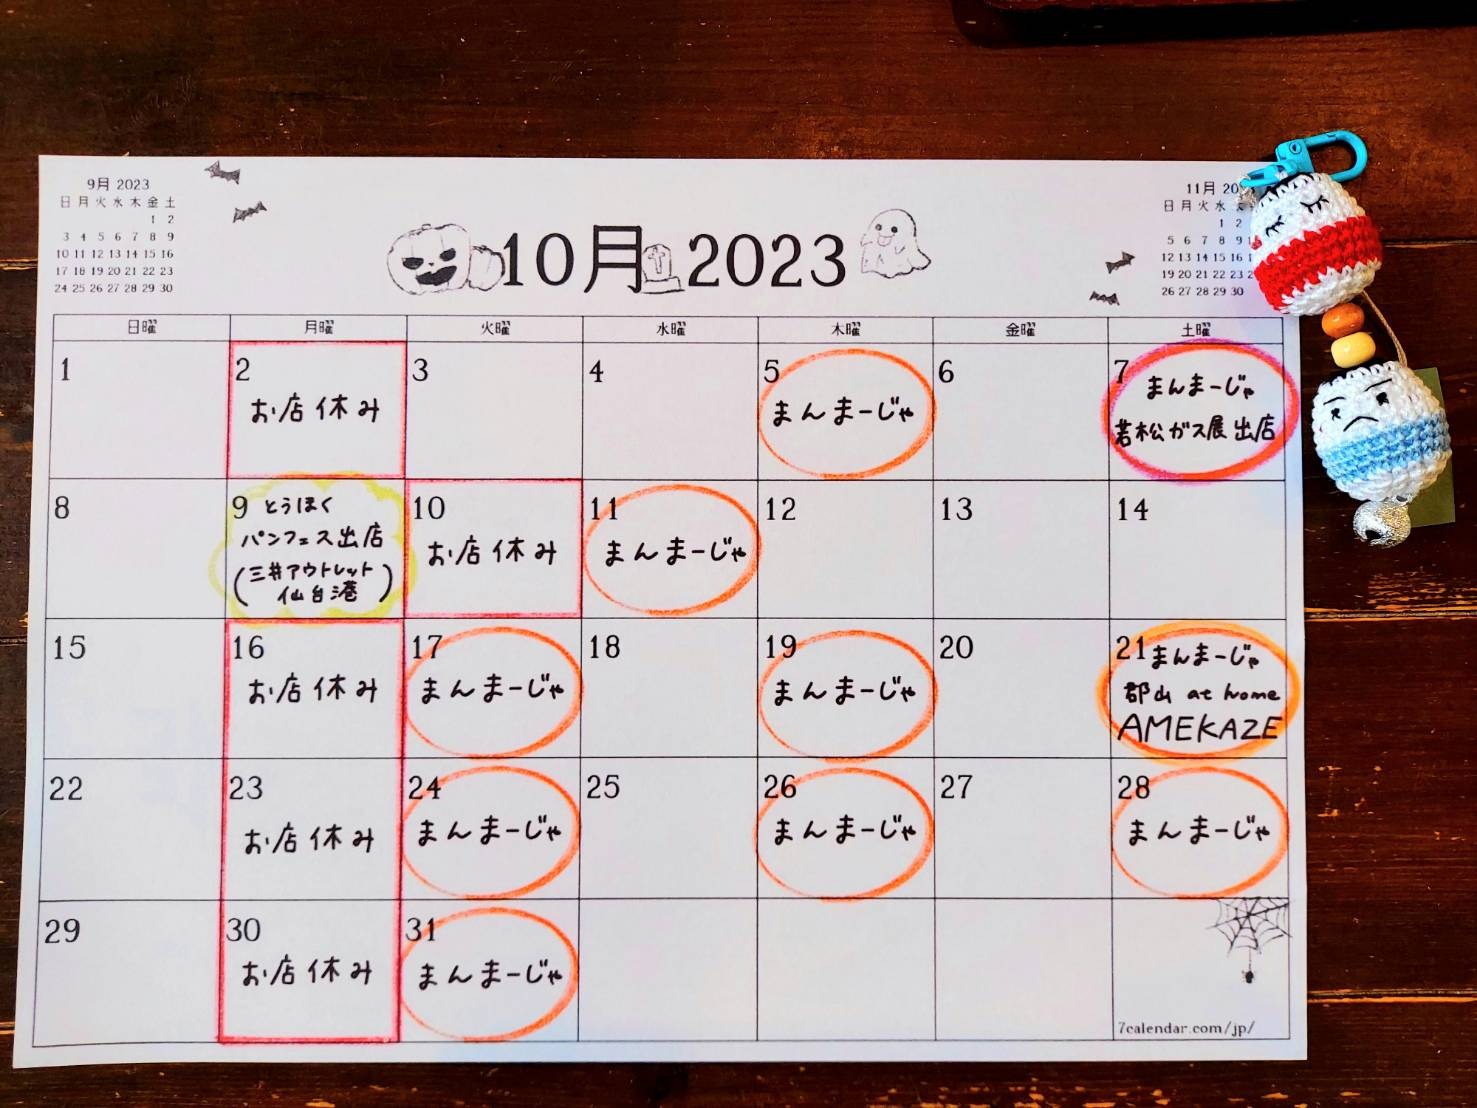 9月 2023
日 月 火 水 木 金 土
1 2
3 4 5 6 7 8 9
10 11 12 13 14 15 16
17 18 19 20 21 22 23
24 25 26 27 28 29 30
10月 2023
11月
日 月 火 水
1 2
5 6 7 8 9
12 13 14 15 16
19 20 21 22 23
26 27 28 29 30
日曜 月曜 火曜 水曜 木曜 金曜 土曜
1
2
お店休み
3
4
5
まんまーじゃ
6
7
まんまーじゃ
若松ガス展出店
8
9 とうほく
パンフェス出店
(三井アウトレット
仙台港)
10
お店休み
11
まんまーじゃ
12
13
14
15
16
お店休み
17
まんまーじゃ
18
19
まんまーじゃ
20
21 まんまーじゃ
郡山 at home
AMEKAZE
22
23
お店休み
24
まんまーじゃ
25
26
まんまーじゃ
27
28
まんまーじゃ
29
30
お店休み
31
まんまーじゃ
7calendar.com/jp/